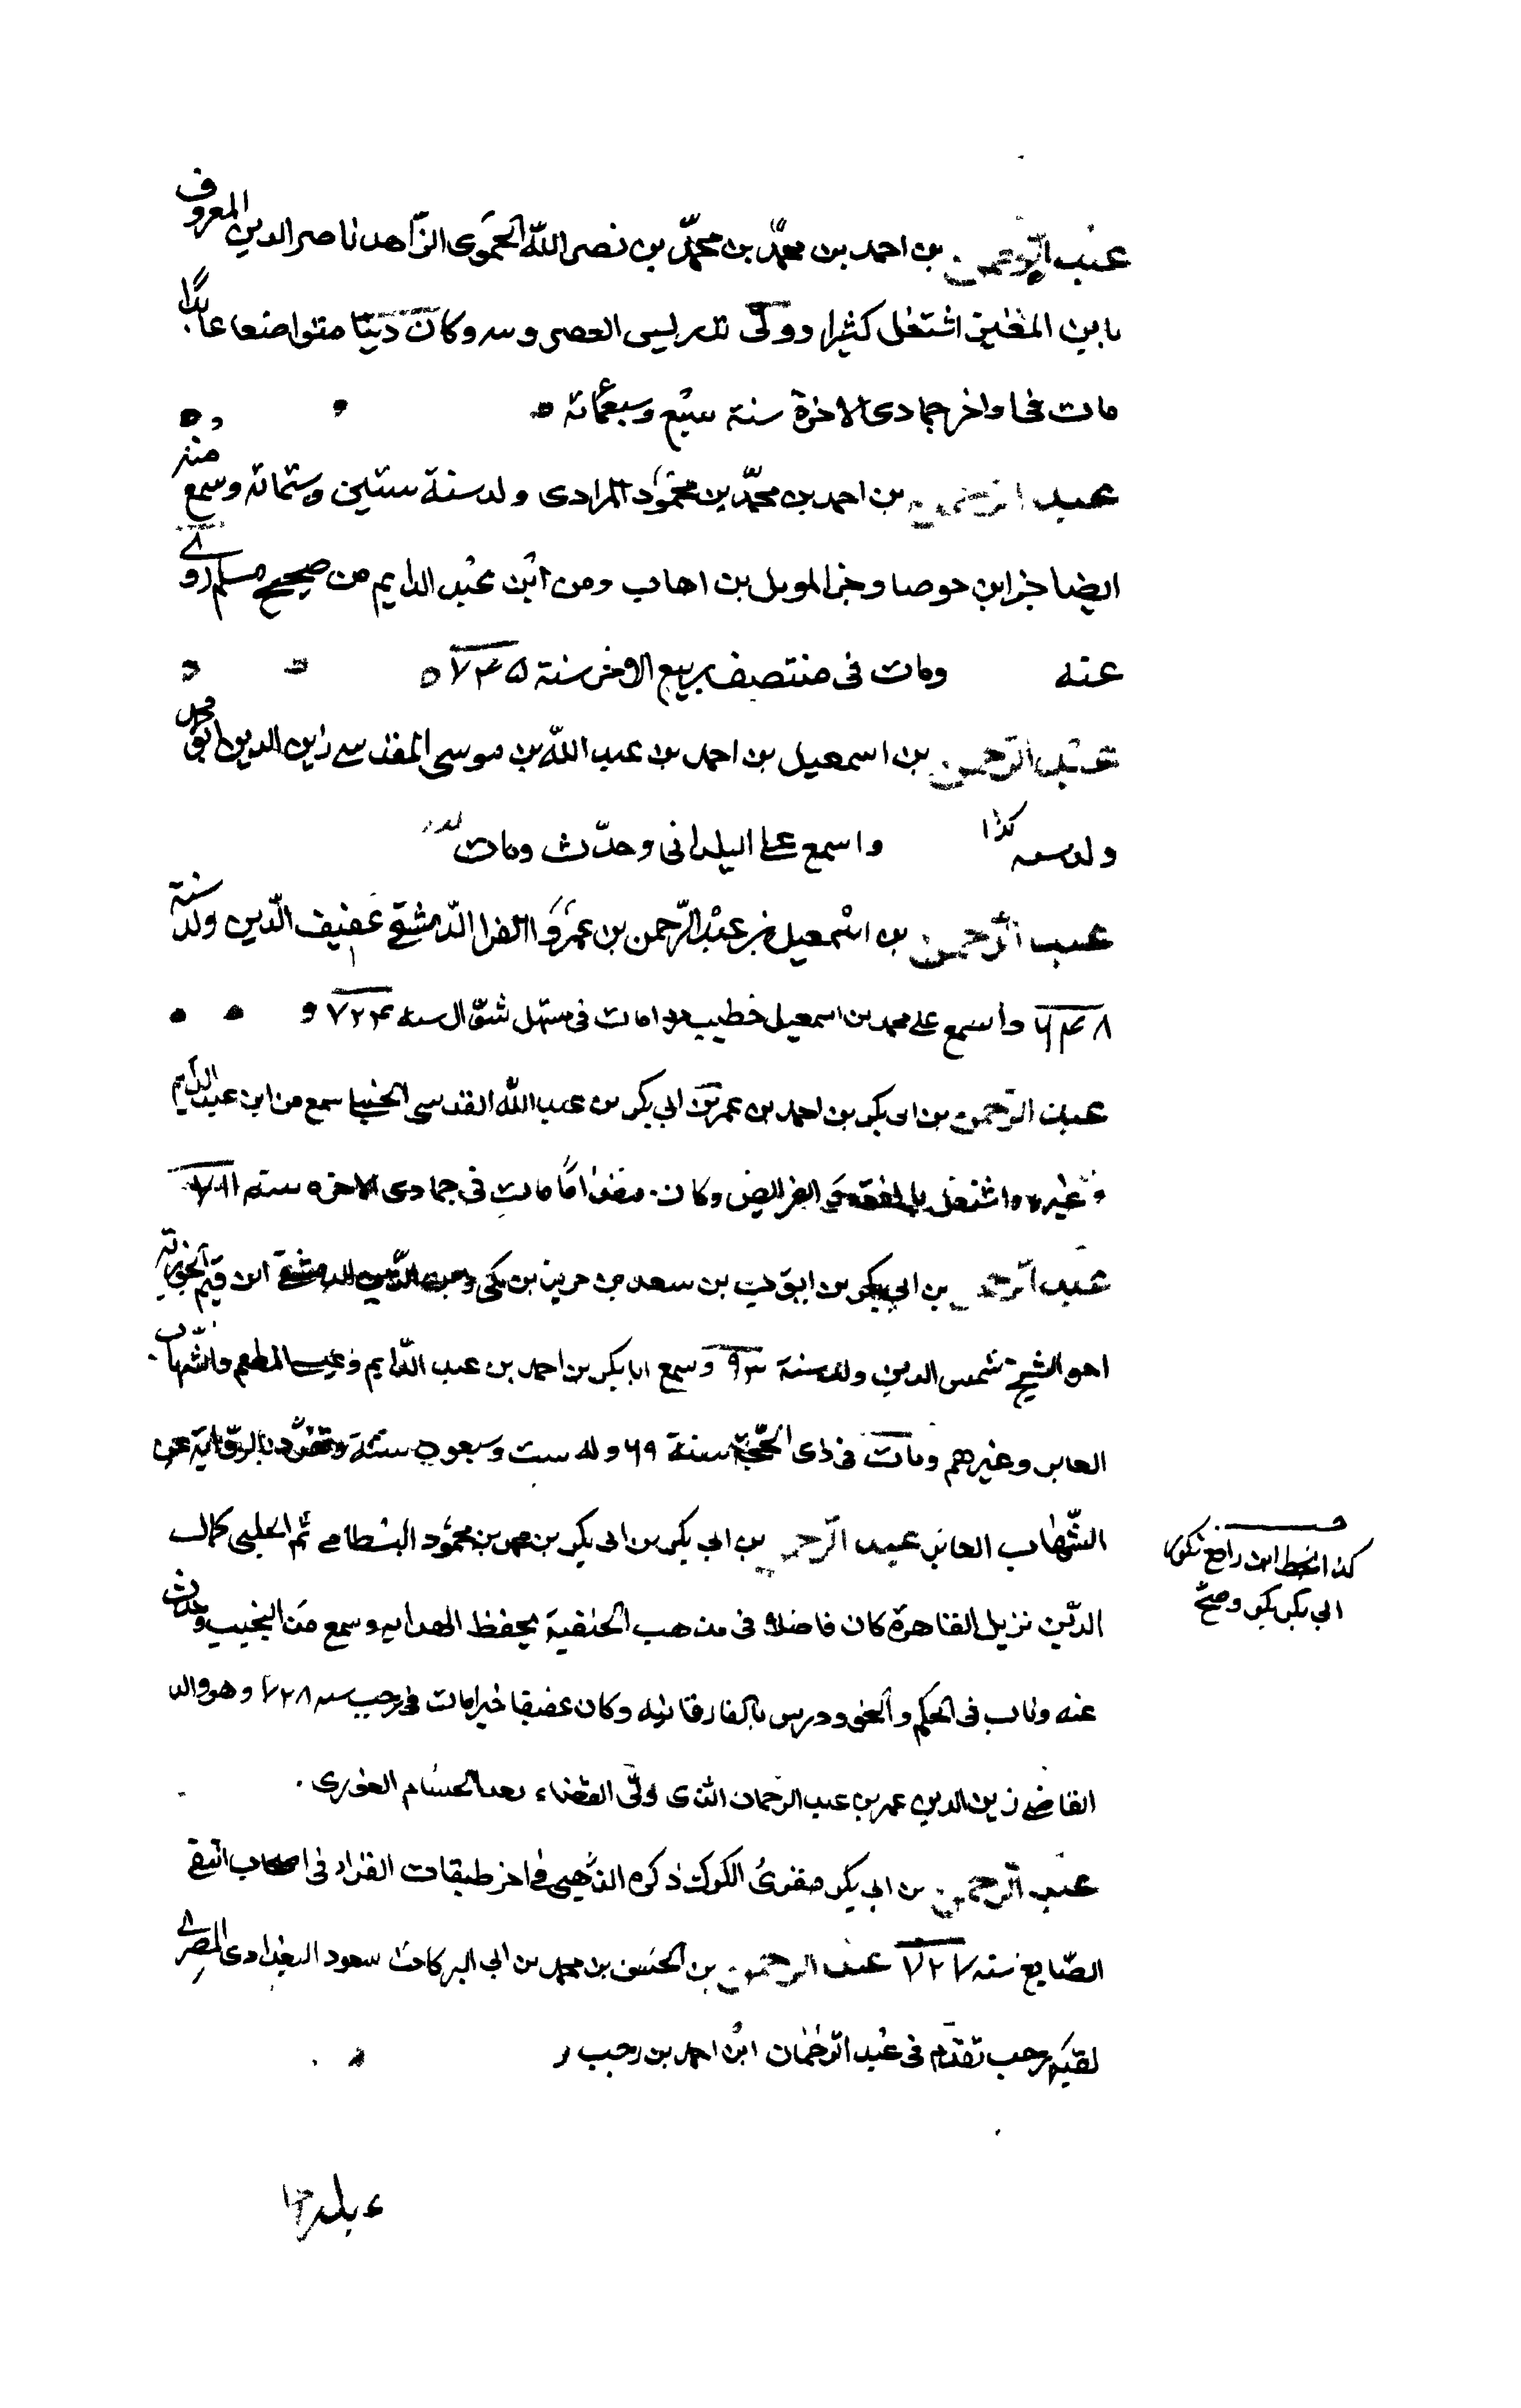 عبد الرحمن بن احمد بن محمّد بن محمّد بن نصر اللّه الحموى الزّاهد ناصر الدين المعروف
بابن المغيزل اشتغل كثيرا وولّى تدريس العصرونيه وكان ديّنا متواضعا عابدا
مات فى اواخر جمادى الاخرة سنة سبع وسبعمائه
عبد الرحمن بن احمد بن محمّد بن محمود المرادى ولد سنة ستين وستمائه وسمع منه
ايضا جزابن جوصا وجزالمومل بن اهاب ومن ابن عبد الدايم من صحيح مسلم روى
عنه ومات فى منتصف ربيع الاخر سنة ٧٣٥
عبد الرّحمن بن اسمعيل بن احمد بن عبد اللّه بن موسى المقدسى زين الدين ابو محمد
ولد سنه كذا واسمع على اليلدانى وحدّث ومات
عبد الرحمن بن اسمعيل بن عبد الرّحمن بن عمرو الفرا الدّمشقى عفيف الدّين ولد سنة
٦٤٨ واسمع على محمد بن اسمعيل خطيب مردا مات فى مستهل شوّال سنه ٧٢٤
عبد الرّحمن بن ابى بكر بن احمد بن عمر بن ابى بكر بن عبد اللّه المقدسى الحنبلى سمع من ابن عبد الدايم
وغيره واشتغل بالفقه وفى الفرايض وكان مات فى جمادى الاخره سنه
عبد الرحمن بن ابى بكر بن ايوب بن سعد بن حريز بن مكى زين الدّين الدمشقى ابن قيم الجوزية
اخو الشيخ شمس الدين ولد سنة ٩٣ وسمع ابا بكر بن احمد بن عبد الدّايم وعيسى المطعم والشّهاب
العابر وغيرهم ومات فى ذى الحجّة سنة ٦٩ وله ست وسبعون سنة وتفرّد بالروّاية عن
الشّهاب العابر عبد الرّحمن بن ابى بكر بن ابى بكر بن محمد بن محمود البسطامى ثم الحلبى كمال
الدّين نزيل القاهرة كان فاضلا فى مذهب الحنفية يحفظ الهدايه وسمع من النجيب وحدث
عنه وناب فى الحكم والجو ودرس بالفارقانيه وكان عفيفا خيرا مات فى رجب سنه ٧٢٨ وهو والد
القاضى زين الدين عمر بن عبد الرحمان الذى ولّى القضاء بعد الحسام الغورى
عبد الرّحمن بن ابى بكر صقرى الكوك ذكره الذّهبى فى اخر طبقات القراء فى اصحاب التقى
الصّايغ سنه ٧٢٧ عبد الرحمن بن الحسن بن محمد بن ابى البركات سعود البغدادى المصرى
لقبه رجب تقدّم فى عبد الرحمان ابن احمد بن رجب
كذا بخط ابن رافع بتكرير
ابى بكر بكر وصح